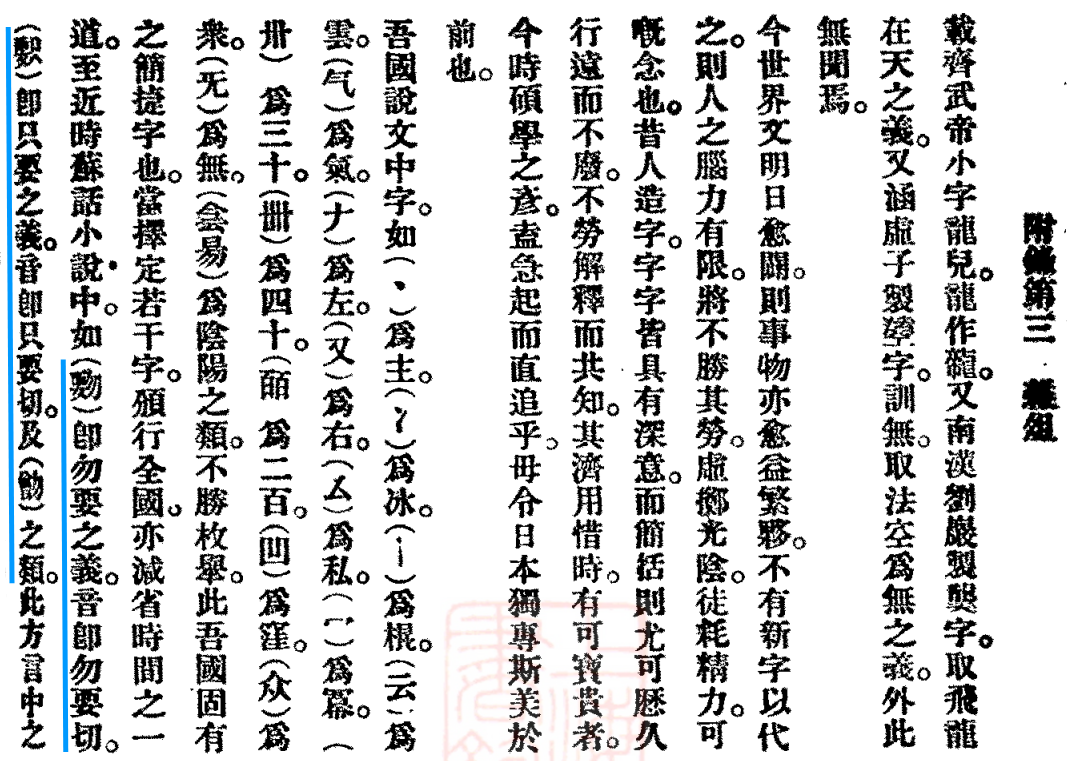 附錄第三　雜俎
載齊武帝小字龍兒。龍作寵。又南漢劉巖製龑字。取飛龍
在天之義。又涵虛子製字。訓無。取法空爲無之義。外此
無聞焉。
今世界文明日愈闢。則事物亦愈益繁夥。不有新字以代
之。則人之腦力有限。將不勝其勞。虛擲光陰。徒耗精力。可
嘅念也。昔人造字。字字皆具有深意。而簡括則尤可歷久
行遠而不廢。不勞解釋而共知。其濟用惜時。有可寶貴者。
今時碩學之彥。盍急起而直追乎。毋令日本獨專斯美於
前也。
吾國說文中字。如（丶）爲主。（冫）爲冰。（丨）爲棍。（云）爲
雲。（气）爲氣。（ナ）爲左。（又）爲右。（厶）爲私。（冖）爲冪。（
卅）爲三十。（卌）爲四十。（皕）爲二百。（凹）爲窪。（众）爲
衆。（无）爲無。（侌易）爲陰陽之類。不勝枚舉。此吾國固有
之簡捷字也。當擇定若干字。頒行全國。亦減省時間之一
道。至近時蘇話小說中。如（覅）卽勿要之義。音卽勿要切。
卽只要之義。音卽只要切。及（朆）之類。此方言中之